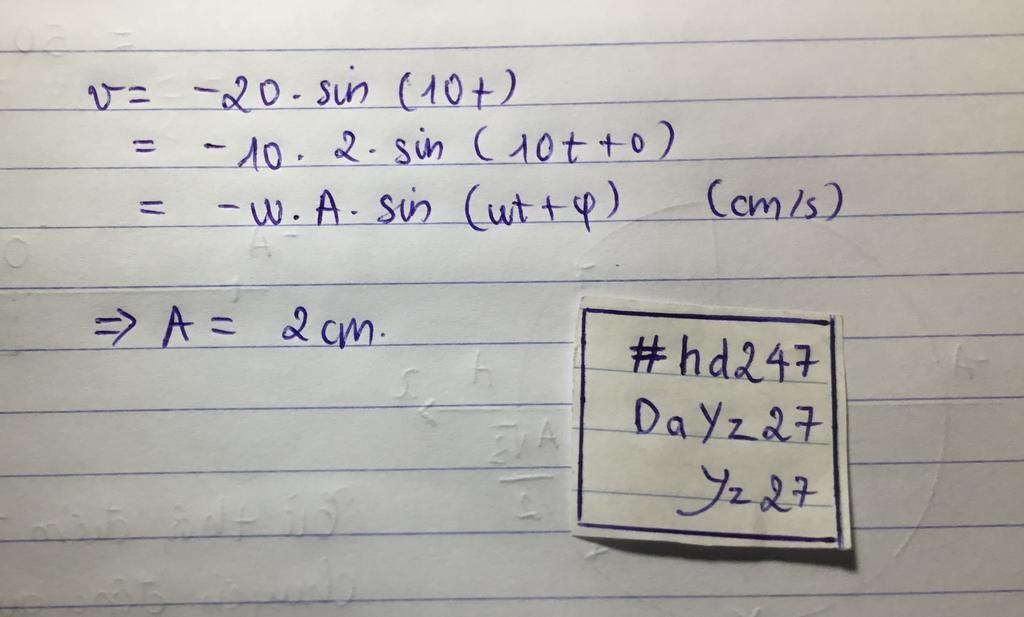 v= -20. sin (10t)
= -10. 2. sin (10t+0)
= -w. A. sin (wt+φ) (cm/s)
⇒ A = 2cm.
#hd247
DaYz27
Yz27